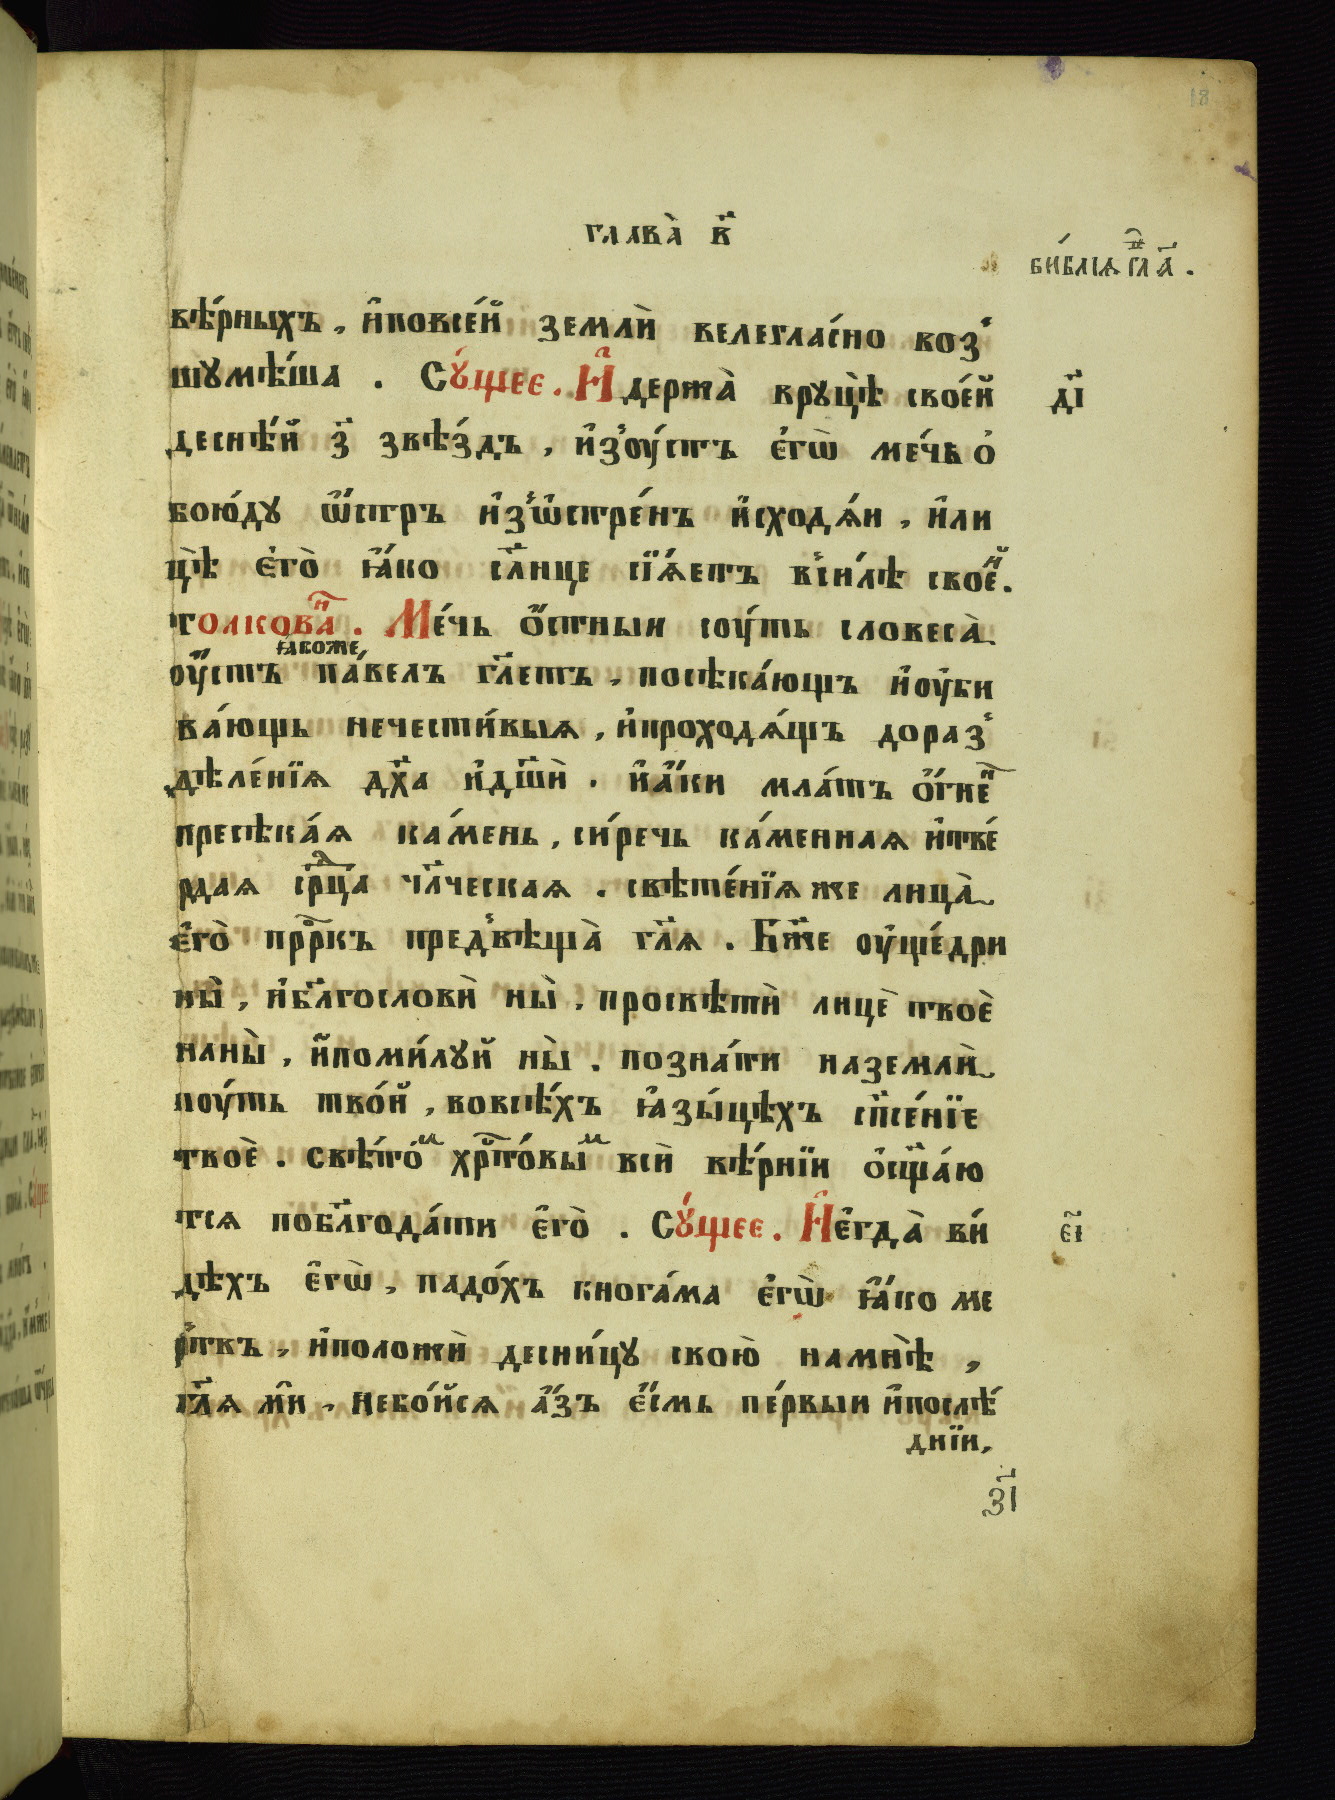 18
глава̀ в҃
би́блїѧ гл҃а.
вѣ́рныхъ, и҆повсе́й землѝ велегла́сно воз̾
шꙋмѣ́ша. Сꙋ́щее. И҆ держа̀ врꙋцѣ̀ свое́й
д҃і
деснѣ́й з҃ ѕвѣ́здъ, и҆з̾ѹ́стъ є҆гѡ̀ ме́чь ѻ҆
бою́дꙋ ѡ҆́стръ и҆з̾ѡ҆стре́нъ и҆сходѧ́и, и҆ли
цѐ є҆гѡ̀ ꙗ҆́ко сл҃нце сїѧ́етъ в̾си́лѣ свое́й.
толкова́нї. Ме́чь ѻ҆́стныи сꙋ́ть словеса̀
ꙗ҆́коже,
ѹ҆́стъ па́велъ гл҃етъ, посѣка́ющъ и҆ѹ҆би
ва́ющь нечести́выѧ, и҆проходѧ́щъ дораз̾
дѣле́нїѧ дх҃а и҆дш҃ѝ. и҆а҆́ки мла́тъ ѻ҆́гнен
пресѣка́ѧ ка́мень, си́речь ка́меннаѧ и҆тве́
рдаѧ срⷣца чл҃ческаѧ. свѣте́нїѧ же лица̀
є҆го̀ прⷪ҇ркъ пред̾вѣща̀ гл҃ѧ. Бж҃е ѹ҆ще́дри
ны̀, и҆бл҃гословѝ ны̀, просвѣтѝ лицѐ твоѐ
наны̀, и҆поми́лꙋй ны̀. позна́ти наземлѝ
пꙋ́ть тво́й, вовсѣ́хъ ꙗ҆зы́цѣхъ сп҃се́нїе
твоѐ. свѣ́томъ хрⷭ҇то́вымъ всѝ вѣ́рнїи ѻ҆сщ҃а́ю
тсѧ побл҃года́ти є҆го̀. Сꙋ́щее. И҆є҆гда̀ ви́
є҃і
дѣхъ є҆гѡ̀, падо́хъ кнога́ма є҆гѡ̀ ꙗ҆́ко ме
р̾твъ, и҆положѝ десни́цꙋ свою̀ намнѣ̀,
гл҃ѧ мѝ, небо́йсѧ а҆́зъ є҆́смь пе́рвыи и҆послѣ́
днїи,
з҃і